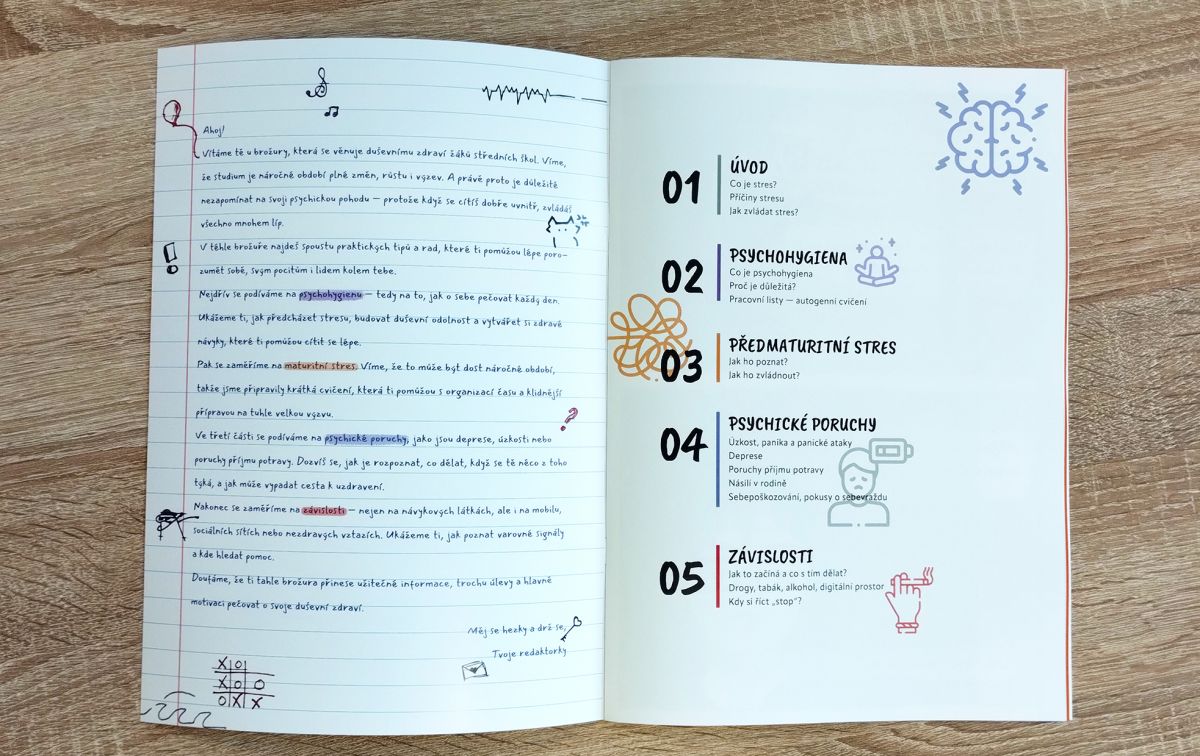 Ahoj!
Vítáme tě u brožury, která se věnuje duševnímu zdraví žáků středních škol. Víme,
že studium je náročné období plné změn, růstu i výzev. A právě proto je důležité
nezapomínat na svoji psychickou pohodu — protože když se cítíš dobře uvnitř, zvládáš
všechno mnohem líp.
V téhle brožuře najdeš spoustu praktických tipů a rad, které ti pomůžou lépe poro-
zumět sobě, svým pocitům i lidem kolem tebe.
Nejdřív se podíváme na psychohygienu — tedy na to, jak o sebe pečovat každý den.
Ukážeme ti, jak předcházet stresu, budovat duševní odolnost a vytvářet si zdravé
návyky, které ti pomůžou cítit se lépe.
Pak se zaměříme na maturitní stres. Víme, že to může být dost náročné období,
takže jsme připravily krátká cvičení, která ti pomůžou s organizací času a klidnější
přípravou na tuhle velkou výzvu.
Ve třetí části se podíváme na psychické poruchy, jako jsou deprese, úzkosti nebo
poruchy příjmu potravy. Dozvíš se, jak je rozpoznat, co dělat, když se tě něco z toho
týká, a jak může vypadat cesta k uzdravení.
Nakonec se zaměříme na závislosti — nejen na návykových látkách, ale i na mobilu,
sociálních sítích nebo nezdravých vztazích. Ukážeme ti, jak poznat varovné signály
a kde hledat pomoc.
Doufáme, že ti tahle brožura přinese užitečné informace, trochu úlevy a hlavně
motivaci pečovat o svoje duševní zdraví.
Měj se hezky a drž se,
Tvoje redaktorky
X O
X O O
O X X
01 ÚVOD
Co je stres?
Příčiny stresu
Jak zvládat stres?
02 PSYCHOHYGIENA
Co je psychohygiena
Proč je důležitá?
Pracovní listy — autogenní cvičení
03 PŘEDMATURITNÍ STRES
Jak ho poznat?
Jak ho zvládnout?
04 PSYCHICKÉ PORUCHY
Úzkost, panika a panické ataky
Deprese
Poruchy příjmu potravy
Násilí v rodině
Sebepoškozování, pokusy o sebevraždu
05 ZÁVISLOSTI
Jak to začíná a co s tím dělat?
Drogy, tabák, alkohol, digitální prostor
Kdy si říct „stop“?